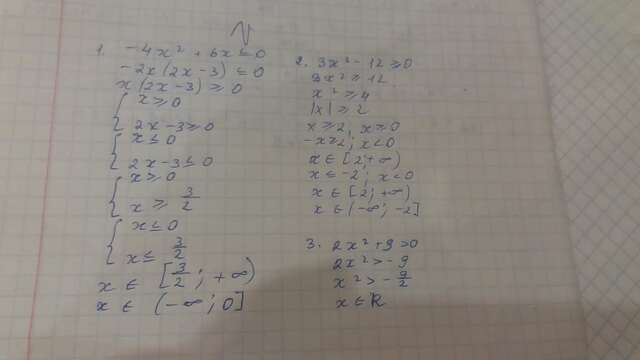 1. -4x² + 6x ≤ 0
-2x(2x-3) ≤ 0
x(2x-3) ≥ 0
{ x ≥ 0
2x-3 ≥ 0
{ x ≤ 0
2x-3 ≤ 0
{ x ≥ 0
x ≥ 3/2
{ x ≤ 0
x ≤ 3/2
x ∈ [3/2; +∞)
x ∈ (-∞; 0]
2. 3x² - 12 ≥ 0
3x² ≥ 12
x² ≥ 4
|x| ≥ 2
x ≥ 2, x ≥ 0
-x ≥ 2; x < 0
x ∈ [2; +∞)
x ≤ -2; x < 0
x ∈ [2; +∞)
x ∈ (-∞; -2]
3. 2x² + 9 > 0
2x² > -9
x² > -9/2
x ∈ R